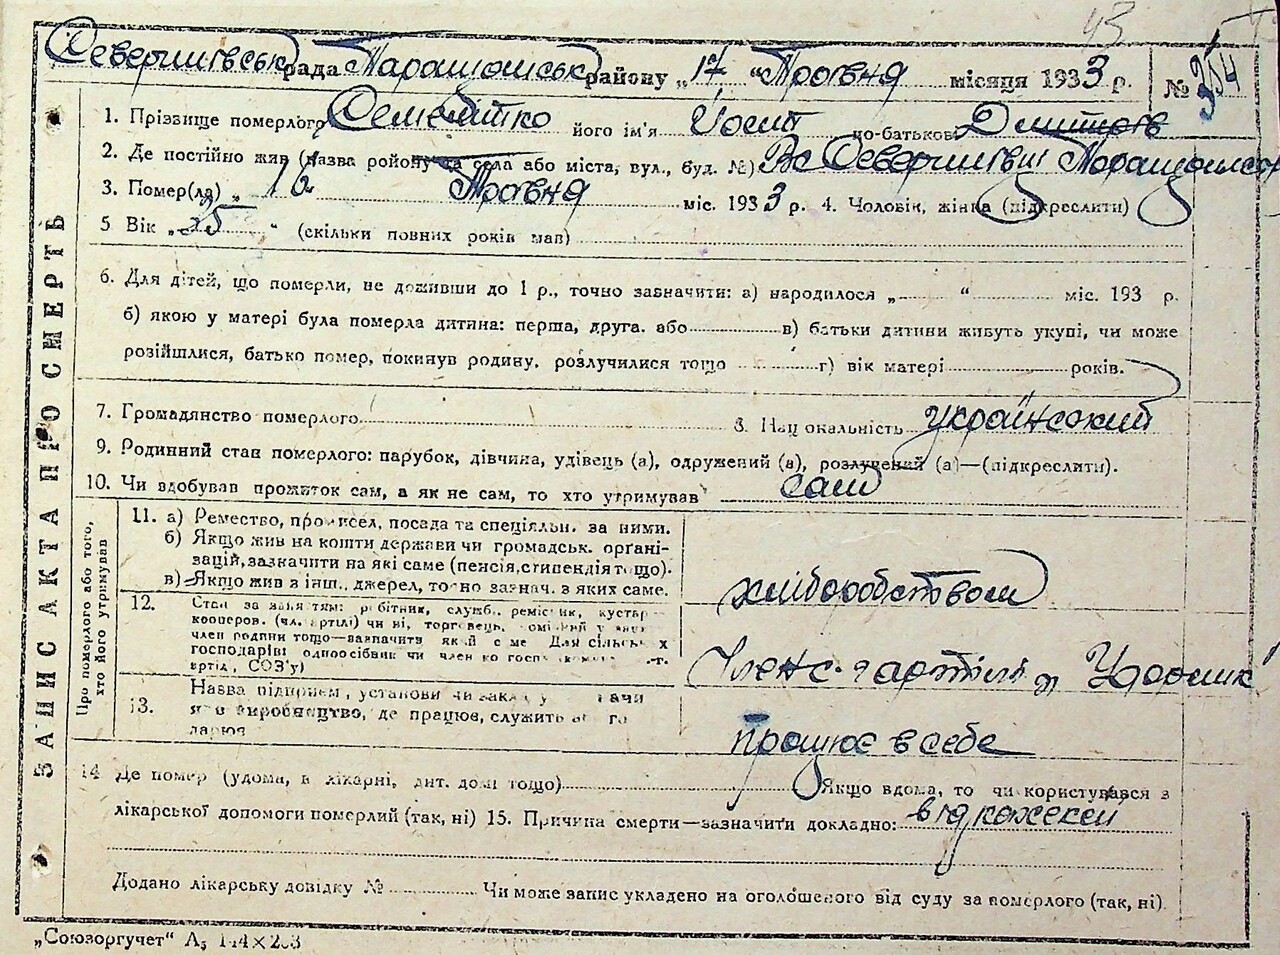 43
Северинівськ рада Таращанськ району „17 “ Травня місяця 1933 р. № 314
1. Прізвище померлого його ім'я Йосип по-батькові Дмитров
2. Де постійно жив (назва району та села або міста, вул., буд. №) В с Северинівці
3. Помер(ла) „ 16 Травня міс. 1933 р. 4. Чоловік, жінка (підкреслити)
5 Вік „ 25 “ (скільки повних років мав)
6. Для дітей, що померли, не доживши до 1 р., точно зазначити: а) народилося „ “ міс. 193 р.
б) якою у матері була померла дитина: перша, друга. або в) батьки дитини живуть укупі, чи може
розійшлися, батько помер, покинув родину, розлучилися тощо г) вік матері років.
7. Громадянство померлого 8. Національність український
9. Родинний стан померлого: парубок, дівчина, удівець (а), одружений (а), розлучений (а)—(підкреслити).
10. Чи здобував прожиток сам, а як не сам, то хто утримував сам
ЗАПИС АКТА ПРО СМЕРТЬ
Про померлого або того, хто його утримував
11. а) Ремество, промисел, посада та спеціяльн. за ними.
б) Якщо жив на кошти держави чи громадськ. орґані-
зацій, зазначити на які саме (пенсія, стипендія тощо).
в) Якщо жив з інш. джерел, точно зазнач. з яких саме.
хліборобством
12. Стан за заняттям: робітник, служб., реміс ик, кустар
кооперов. (чл. артілі) чи ні, торговець,
член родини тощо—зазначити як й с ме Для сільськ х
господарів одноосібник чи член
артіл, СОЗ'у)
Член с. г артілі
13. Назва підприєм, установи чи закладу
я о виробництво, де працює, служить
працює в себе
14 Де помер (удома, в лікарні, дит. домі тощо) Якщо вдома, то чи користувався з
лікарської допомоги померлий (так, ні) 15. Причина смерти—зазначити докладно: від
Додано лікарську довідку № Чи може запис укладено на оголошеного від суду за померлого (так, ні).
„Союзоргучет“ А5 144×203